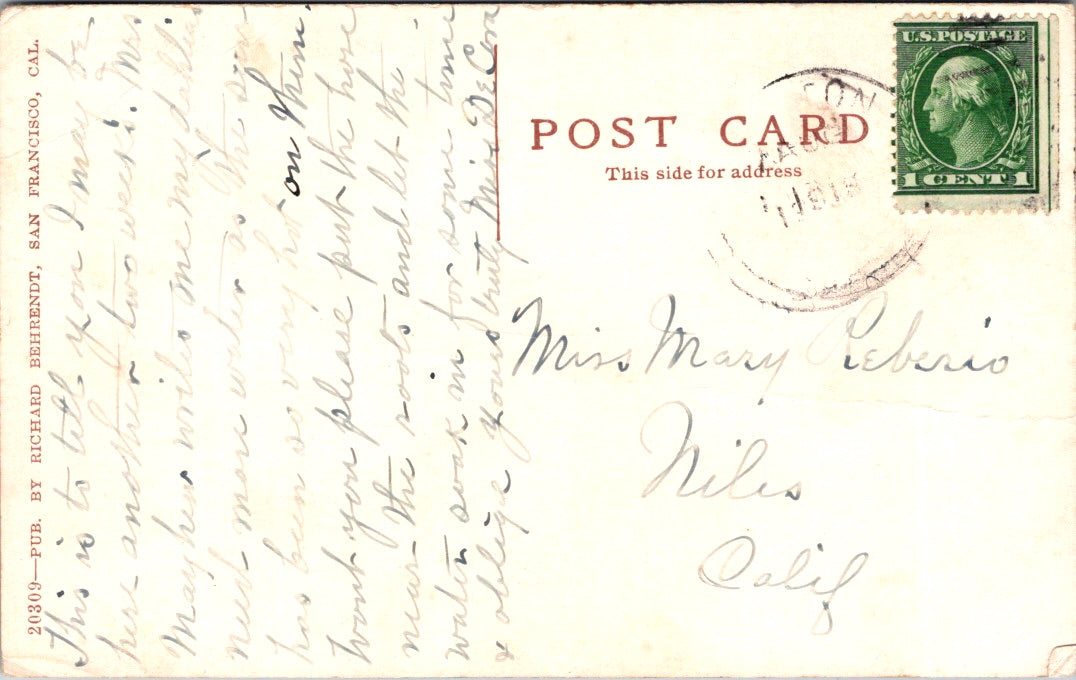 20309—PUB. BY RICHARD BEHRENDT, SAN FRANCISCO, CAL.
This is to tell you I may be
here another two weeks. Mrs
Mayhew writes me my dahlias
need more water as the sun
has been so very hot on them.
Wont you please put the hose
near the roots and let the
water soak in for some time
& oblige yours truly Miss De
POST CARD
This side for address
U.S. POSTAGE
1 CENT 1
TON
AUG
1918
Miss Mary Reberio
Niles
Calif